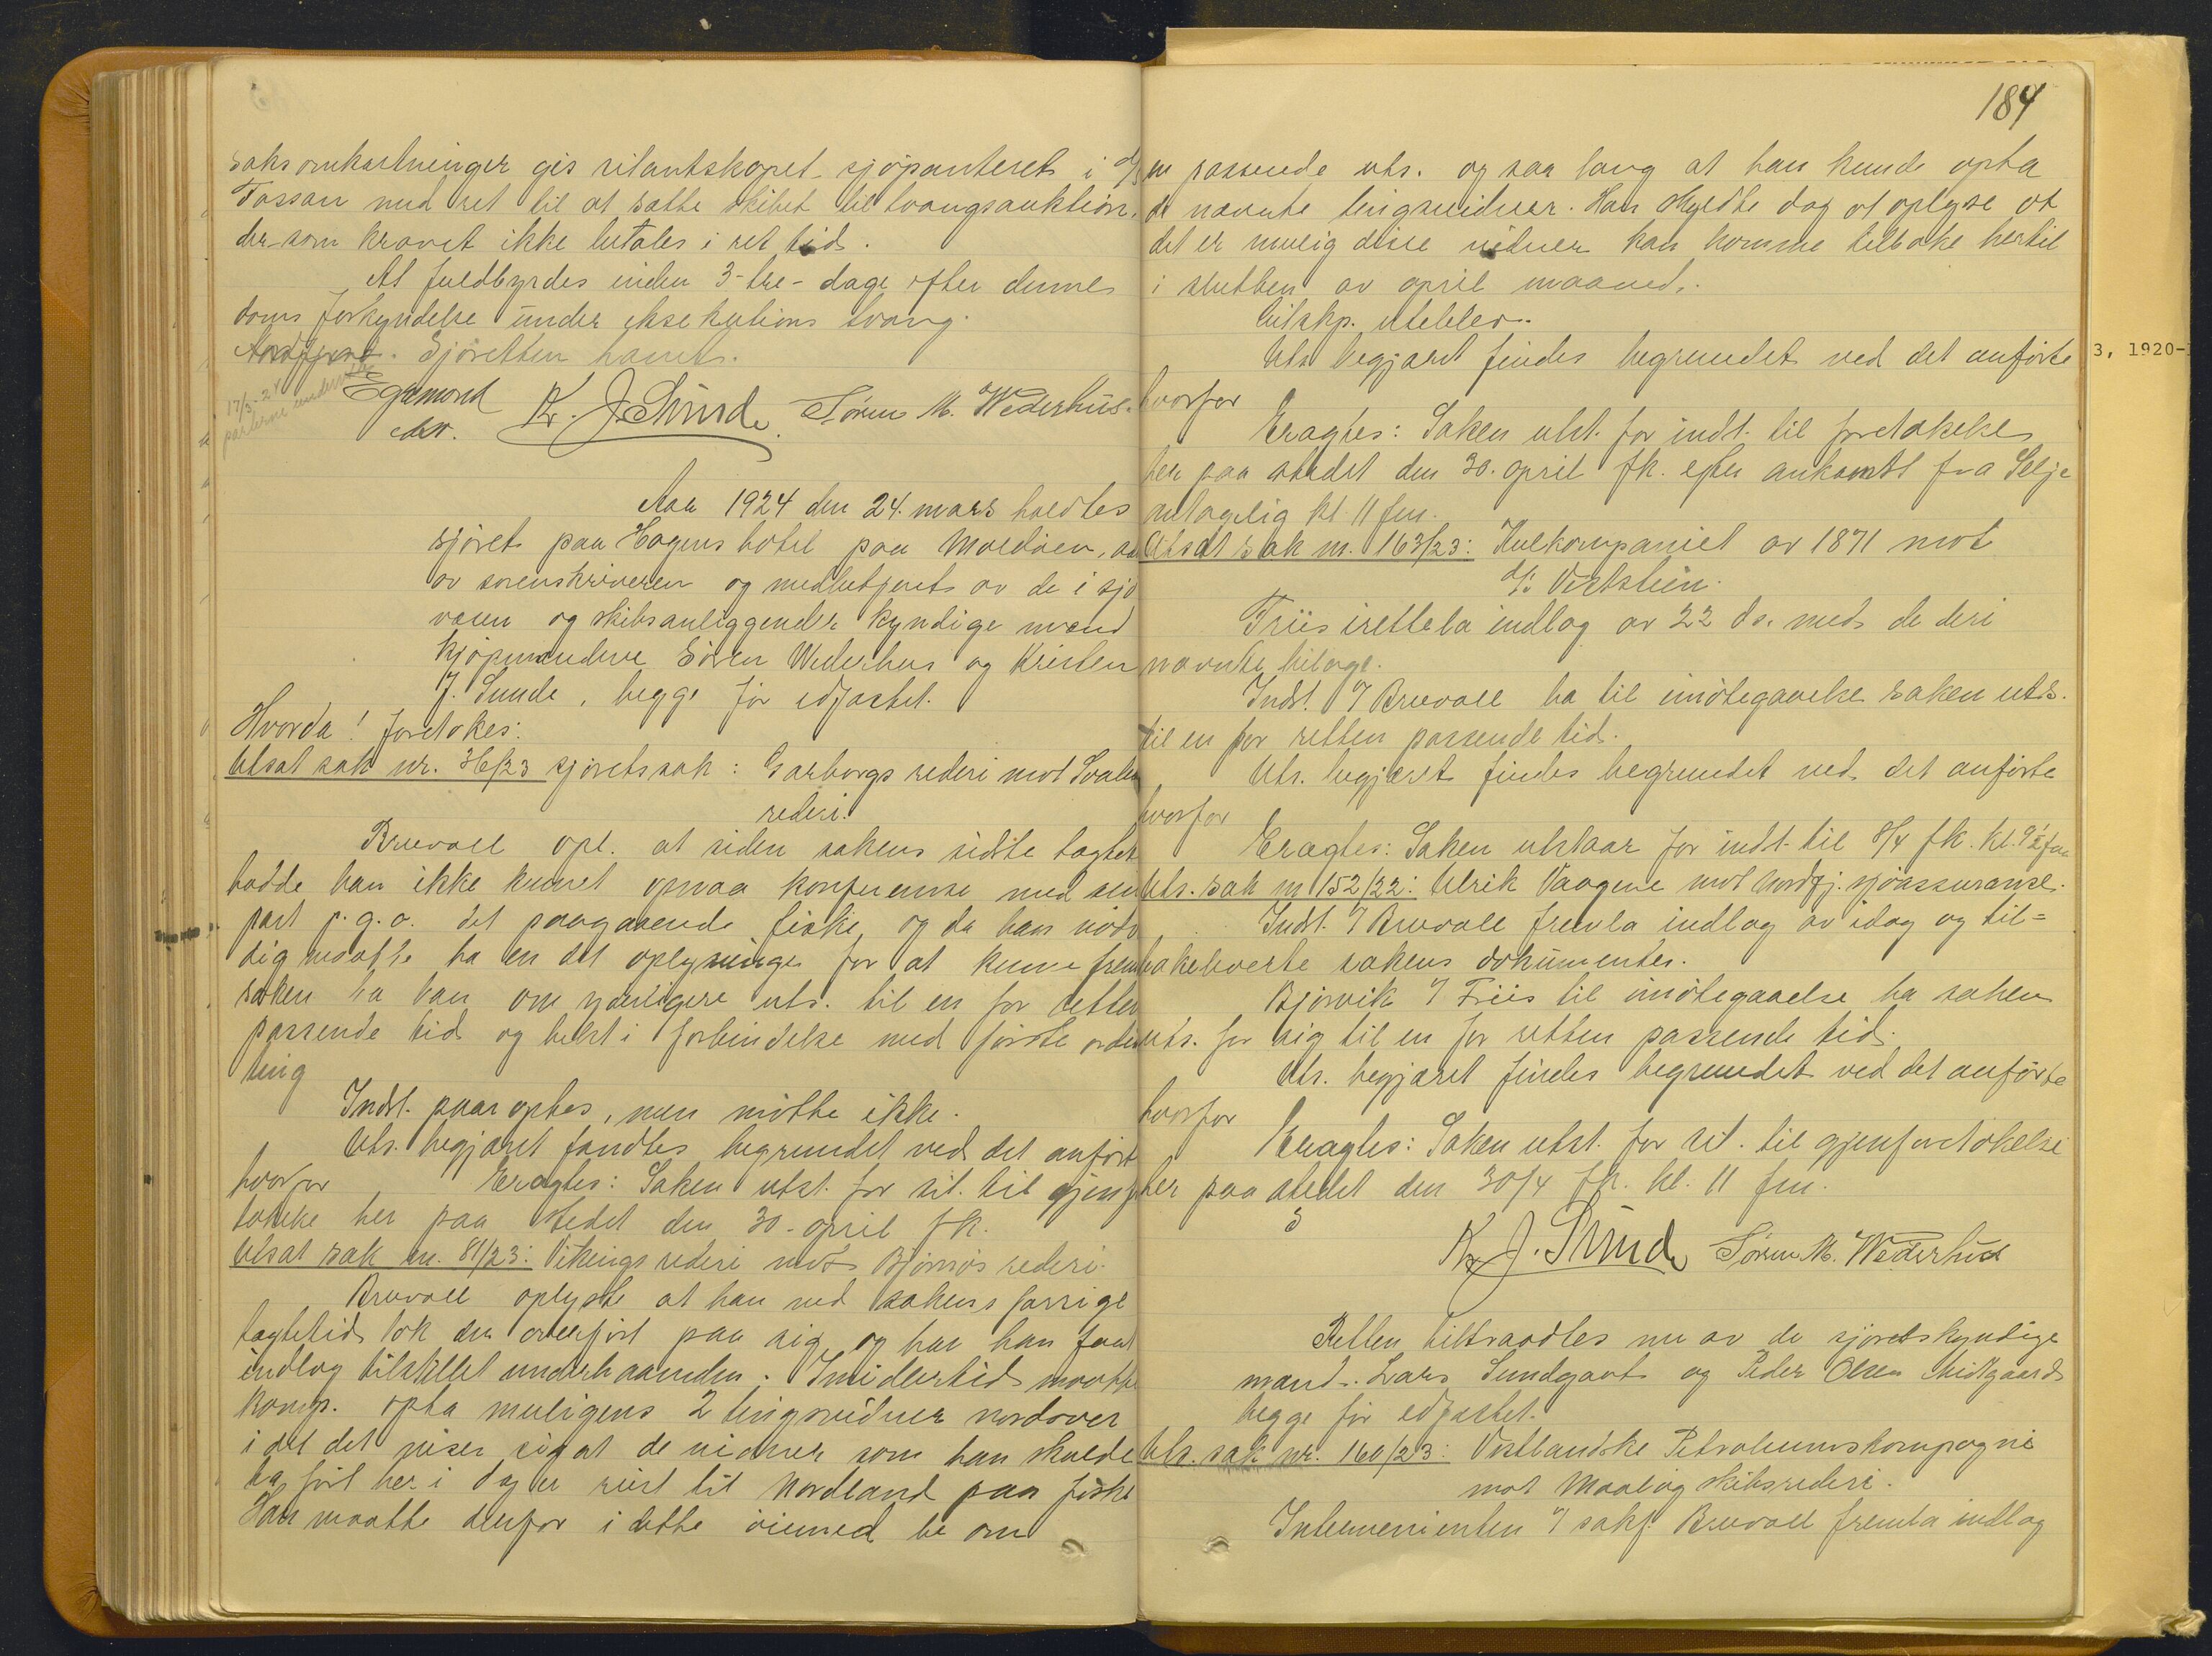 saksomkastninger gis sitantskapet sjøpanteret i d/s
Tassan med ret til at sætte skibet til tvangsauktion,
dersom kravet ikke betales i ret tid.
At fuldbyrdes inden 3-tre-dage efter denne
doms forkyndelse under eksekutions tvang.
Sjøretten hævet.
17/3-24
partene underrettet
Egemond
cst. K. J. Sunde Søren M. Wederhus.
Aar 1924 den 24. mars holdtes
sjøret paa Hagens hotel paa Maaløen, ad
av sorenskriveren og medbetjent av de i sjø
væsen og skibsanliggender kyndige mænd
kjøpmændene Søren Wederhus og Kristen
J. Sunde, begge før edfæstet.
Hvorda! foretokes:
Utsat sak nr. 36/23 sjøretssak: Garborgs rederi mot Svalen
rederi.
Bruvoll opl. at siden sakens sidste tægtet
hadde han ikke kunnet opnaa konferense med sin
part p.g.a. det paagaaende fiske, og da han nødv
dig maatte ha en del oplysninger for at kunne frem
saken ba han om yderligere uts. til en for retten
passende tid og helst i forbindelse med første ordin
ting
Indst. paaroptes, men møtte ikke.
Uts. begjæret fandtes begrundet ved det anført
hvorfor Eragtes: Saken utst. for sit. til gjenfo
takelse her paa stedet den 30. april fk.
Utsat sak nr. 81/23: Vikings rederi mot Bjørnøs rederi.
Bruvoll oplyste at han ved sakens forrige
tægtetid tok den overført paa sig og har han faat
indlæg tilstillet underhaanden. Imidlertid maatte
komp. opta muligens 2 tingsvidner nordover
idet det viser sig at de vidner som han skulde
ha ført her i dag er reist til Nordland paa fiske
Han maatte derfor i dette øiemed be om
184
en passende uts. og saa lang at han kunde opta
de nævnte tingsvidner. Han skyldte dog at oplyse at
det er mulig disse vidner kan komme tilbake hertil
i slutten av april maaned.
Citskp. uteblev.
Uts begjæret findes begrundet ved det anførte
hvorfor
Eragtes: Saken utst. for indst. til foretakelse
her paa stedet den 30. april fk. efter ankomst fra Selje
antagelig kl 11 fm.
Utsat sak nr. 163/23: Kulkompaniet av 1871 mot
d/s Veststein.
Friis irettela indlæg av 22 ds. med de deri
nævnte bilage.
Indst. v/ Bruvoll ba til imøtegaaelse saken uts.
til en for retten passende tid.
Uts. begjæret findes begrundet ved det anførte
hvorfor
Eragtes: Saken utstaar for indst. til 8/4 fk. kl. 9½ fm
Uts. sak nr 152/22: Ulrik Vaagene mot Nordfj. sjøassuranse.
Indst. v/ Bruvoll fremla indlæg av idag og til=
bakeleverte sakens dokumenter.
Bjørvik v/ Friis til imøtegaaelse ba saken
uts. for sig til en for retten passende tid.
Uts. begjæret findes begrundet ved det anførte
hvorfor
Eragtes: Saken utst. for sit. til gjenforetakelse
her paa stedet den 30/4 fk. kl. 11 fm.
K. J. Sunde Søren M. Wederhus
Retten tiltraadtes nu av de sjøretskyndige
mænd. Lars Sundgaot og Peder Olsen Midtgaard
begge før edfæstet.
Uts. sak nr. 160/23: Vestlandske Petroleumskompagni
mot Maaløy skibsrederi.
Intervenienten v/ sakf. Bruvoll fremla indlæg
3, 1920-